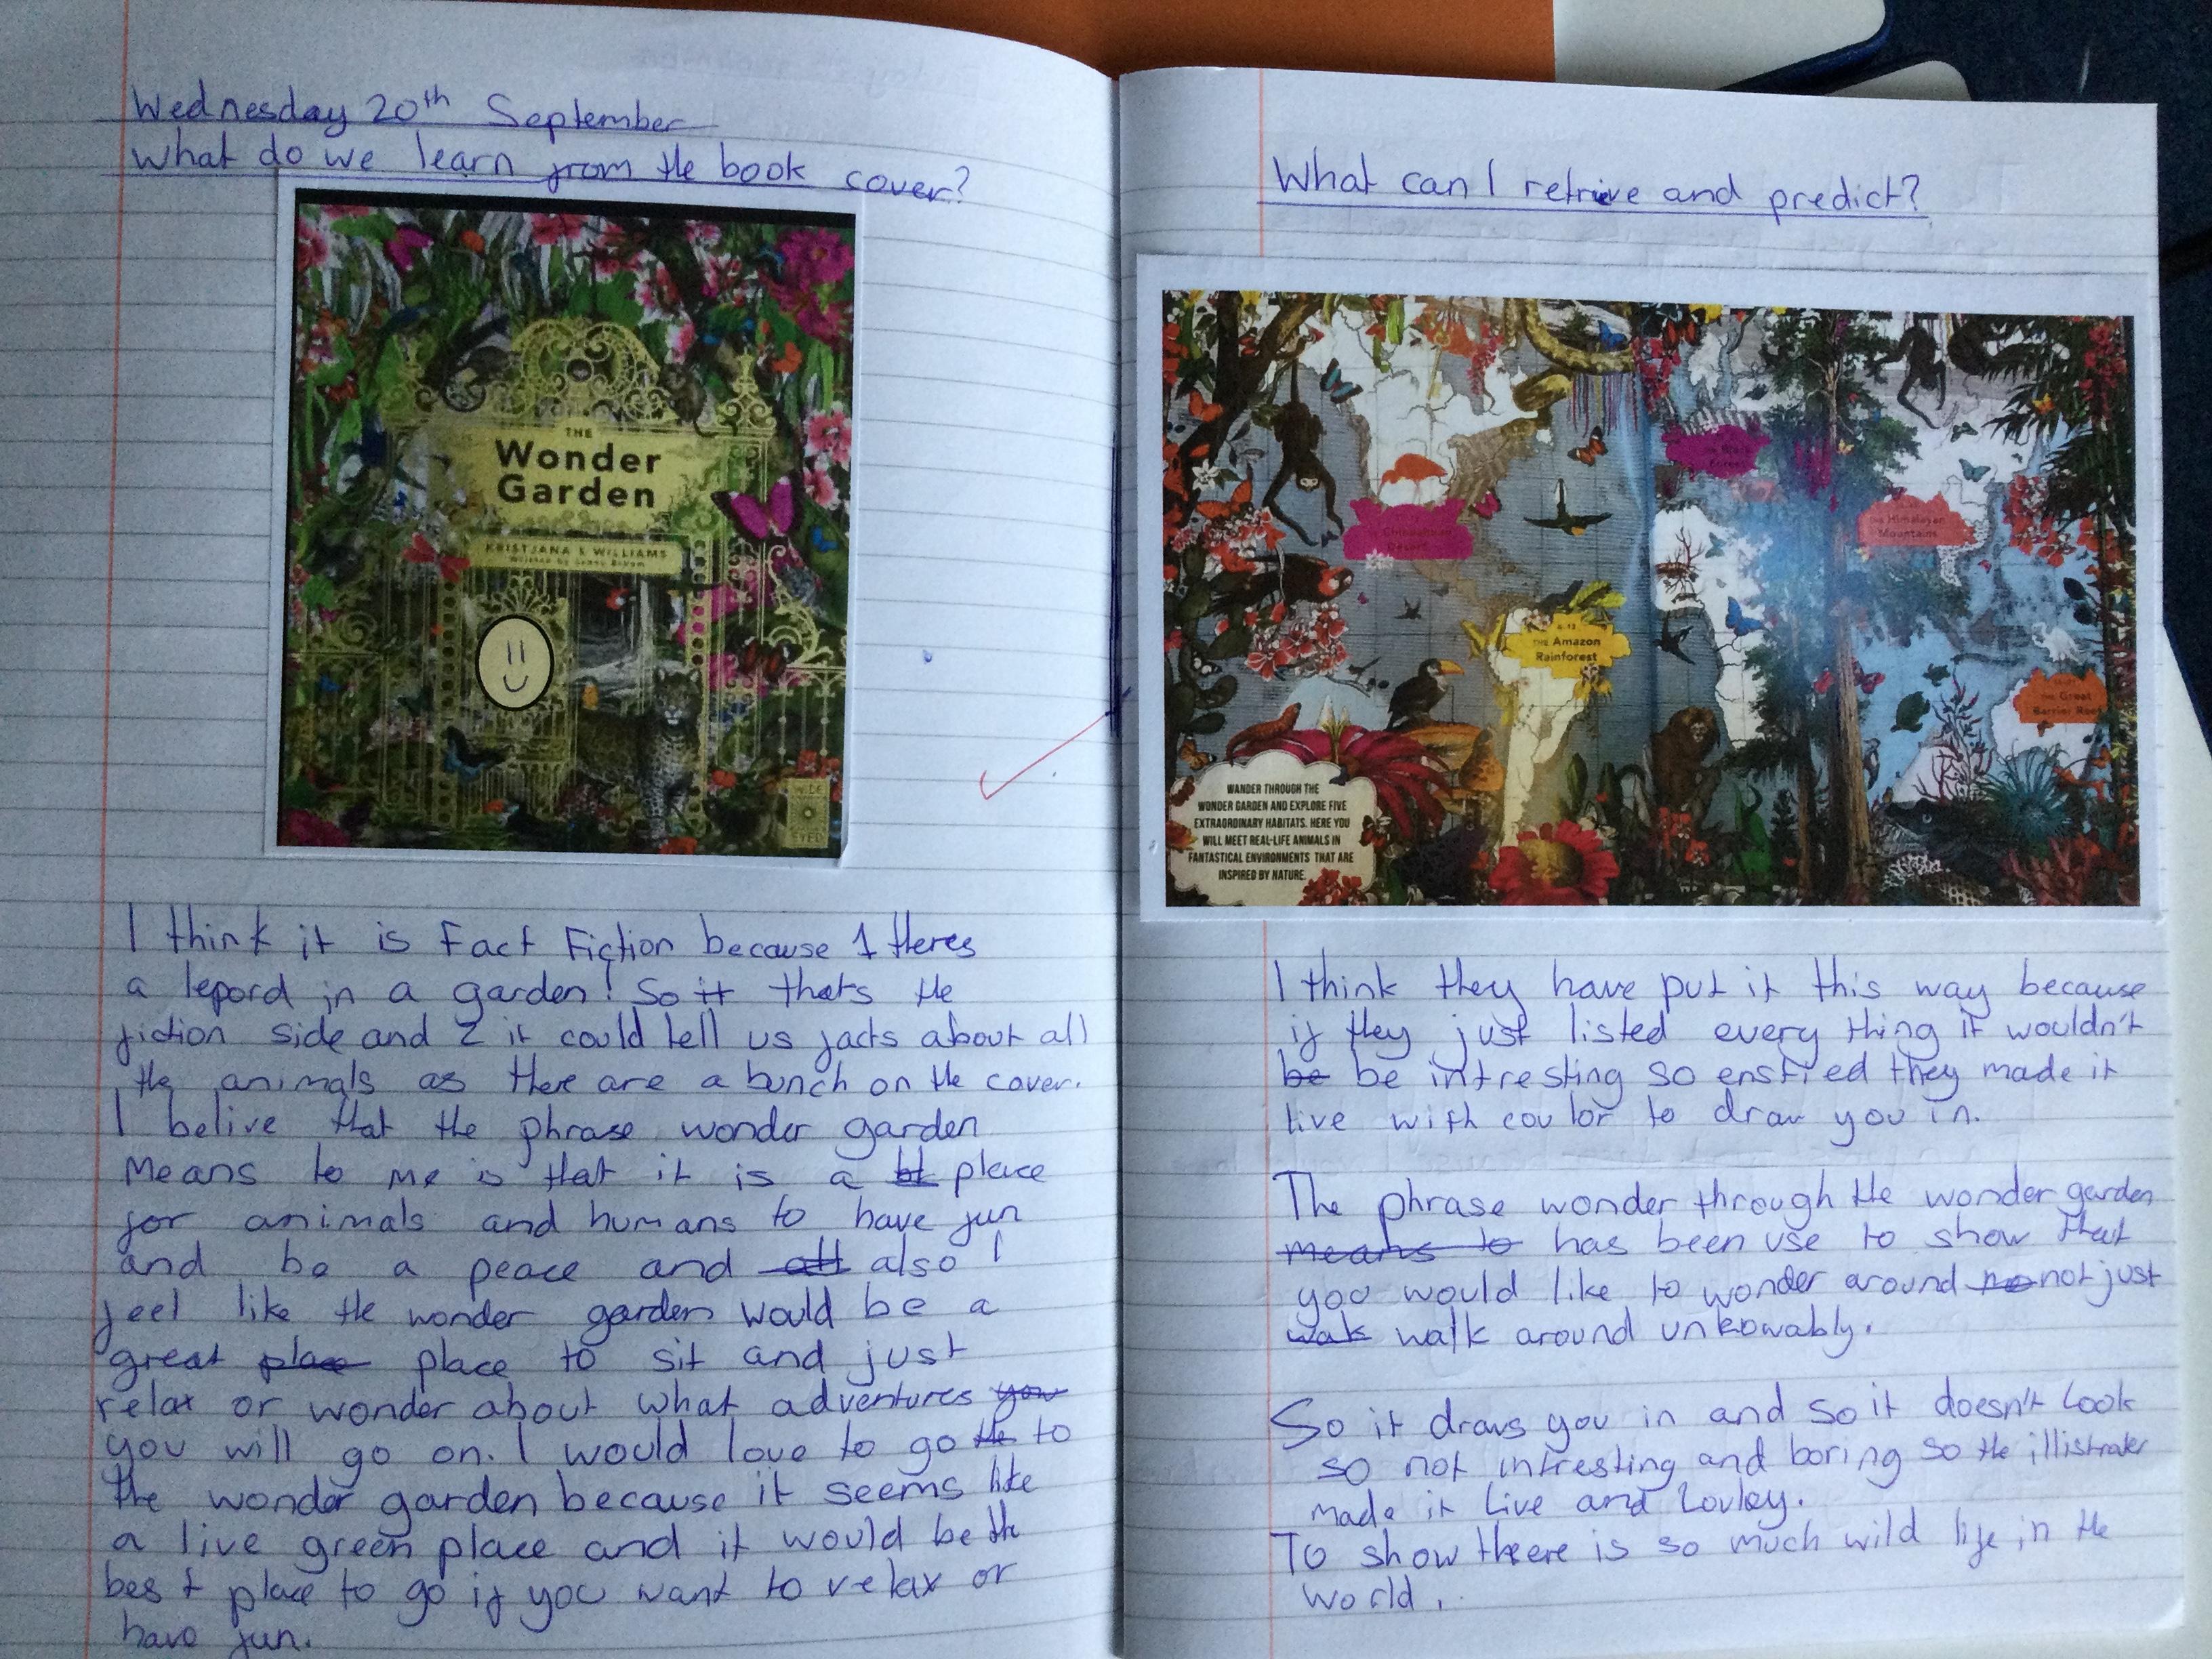 Wednesday 20th September
What do we learn from the book cover?
THE
Wonder
Garden
KRISTJANA S WILLIAMS
Written by Jenny Broom
WIDE
EYED
I think it is Fact Fiction because 1 theres
a lepord in a garden! So it thats the
fiction side and 2 it could tell us facts about all
the animals as there are a bunch on the cover.
I belive that the phrase wonder garden
means to me is that it is a bt place
for animals and humans to have fun
and be a peace and all also I
feel like the wonder garden would be a
great place place to sit and just
relax or wonder about what adventures you
you will go on. I would love to go the to
the wonder garden because it seems like
a live green place and it would be the
best place to go if you want to relax or
have fun.
What can I retrive and predict?
THE Black
Forest
Chihuahuan
Desert
THE Himalayan
Mountains
THE Amazon
Rainforest
THE Great
Barrier Reef
WANDER THROUGH THE
WONDER GARDEN AND EXPLORE FIVE
EXTRAORDINARY HABITATS. HERE YOU
WILL MEET REAL-LIFE ANIMALS IN
FANTASTICAL ENVIRONMENTS THAT ARE
INSPIRED BY NATURE.
I think they have put it this way because
if they just listed every thing it wouldn't
be be intresting so enstied they made it
live with coulor to draw you in.
The phrase wonder through the wonder garden
means to has been use to show that
you would like to wonder around no not just
wak walk around unkowably.
So it draws you in and so it doesn't look
so not intresting and boring so the illistrater
made it live and Lovley.
To show there is so much wild life in the
world.